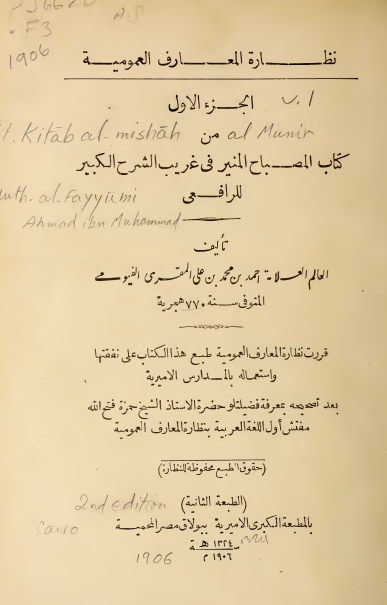 PJ6620
.F3
1906
نظارة المعارف العمومية
الجزء الاول v. 1
t. Kitāb al-mishāh من al Munir
كتاب المصباح المنير فى غريب الشرح الكبير
للرافعى
uth. al-Fayyūmi
Ahmad ibn Muhammad
تأليف
العالم العلامة احمد بن محمد بن على المقرى الفيومى
المتوفى سنة ٧٧٠ هجرية
قررت نظارة المعارف العمومية طبع هذا الكتاب على نفقتها
واستعماله بالمدارس الاميرية
بعد تصحيحه بمعرفة فضيلتلو حضرة الاستاذ الشيخ حمزة فتح الله
مفتش أول اللغة العربية بنظارة المعارف العمومية
(حقوق الطبع محفوظة للنظارة)
(الطبعة الثانية) 2nd edition
بالمطبعة الكبرى الاميرية ببولاق مصر المحمية
Cairo
١٣٢٤ هـ 1324
١٩٠٦ م
1906